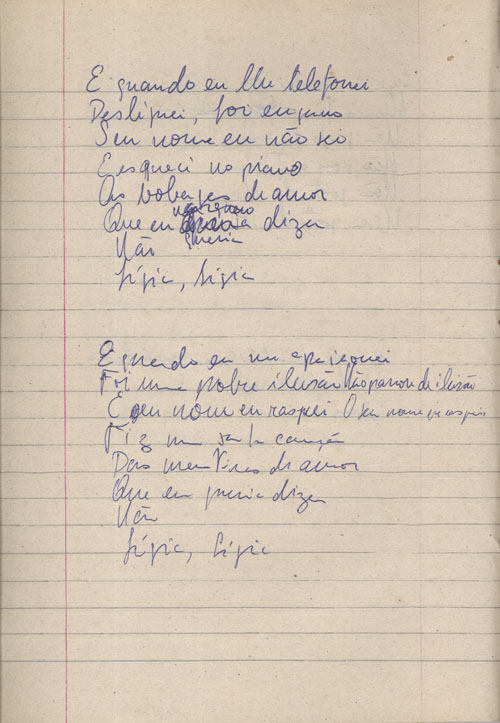 E quando eu lhe telefonei
Desliguei, foi engano
Seu nome eu não sei
Esqueci no piano
As bobagens de amor
Que eu dizer
queria
Não
Lígia, Lígia
E quando eu me apaixonei
Foi uma pobre ilusão Não passou de ilusão
E seu nome eu rasguei O seu nome rasguei
Fiz um samba canção
Das mentiras de amor
Que eu queria dizer
Não
Lígia, Lígia